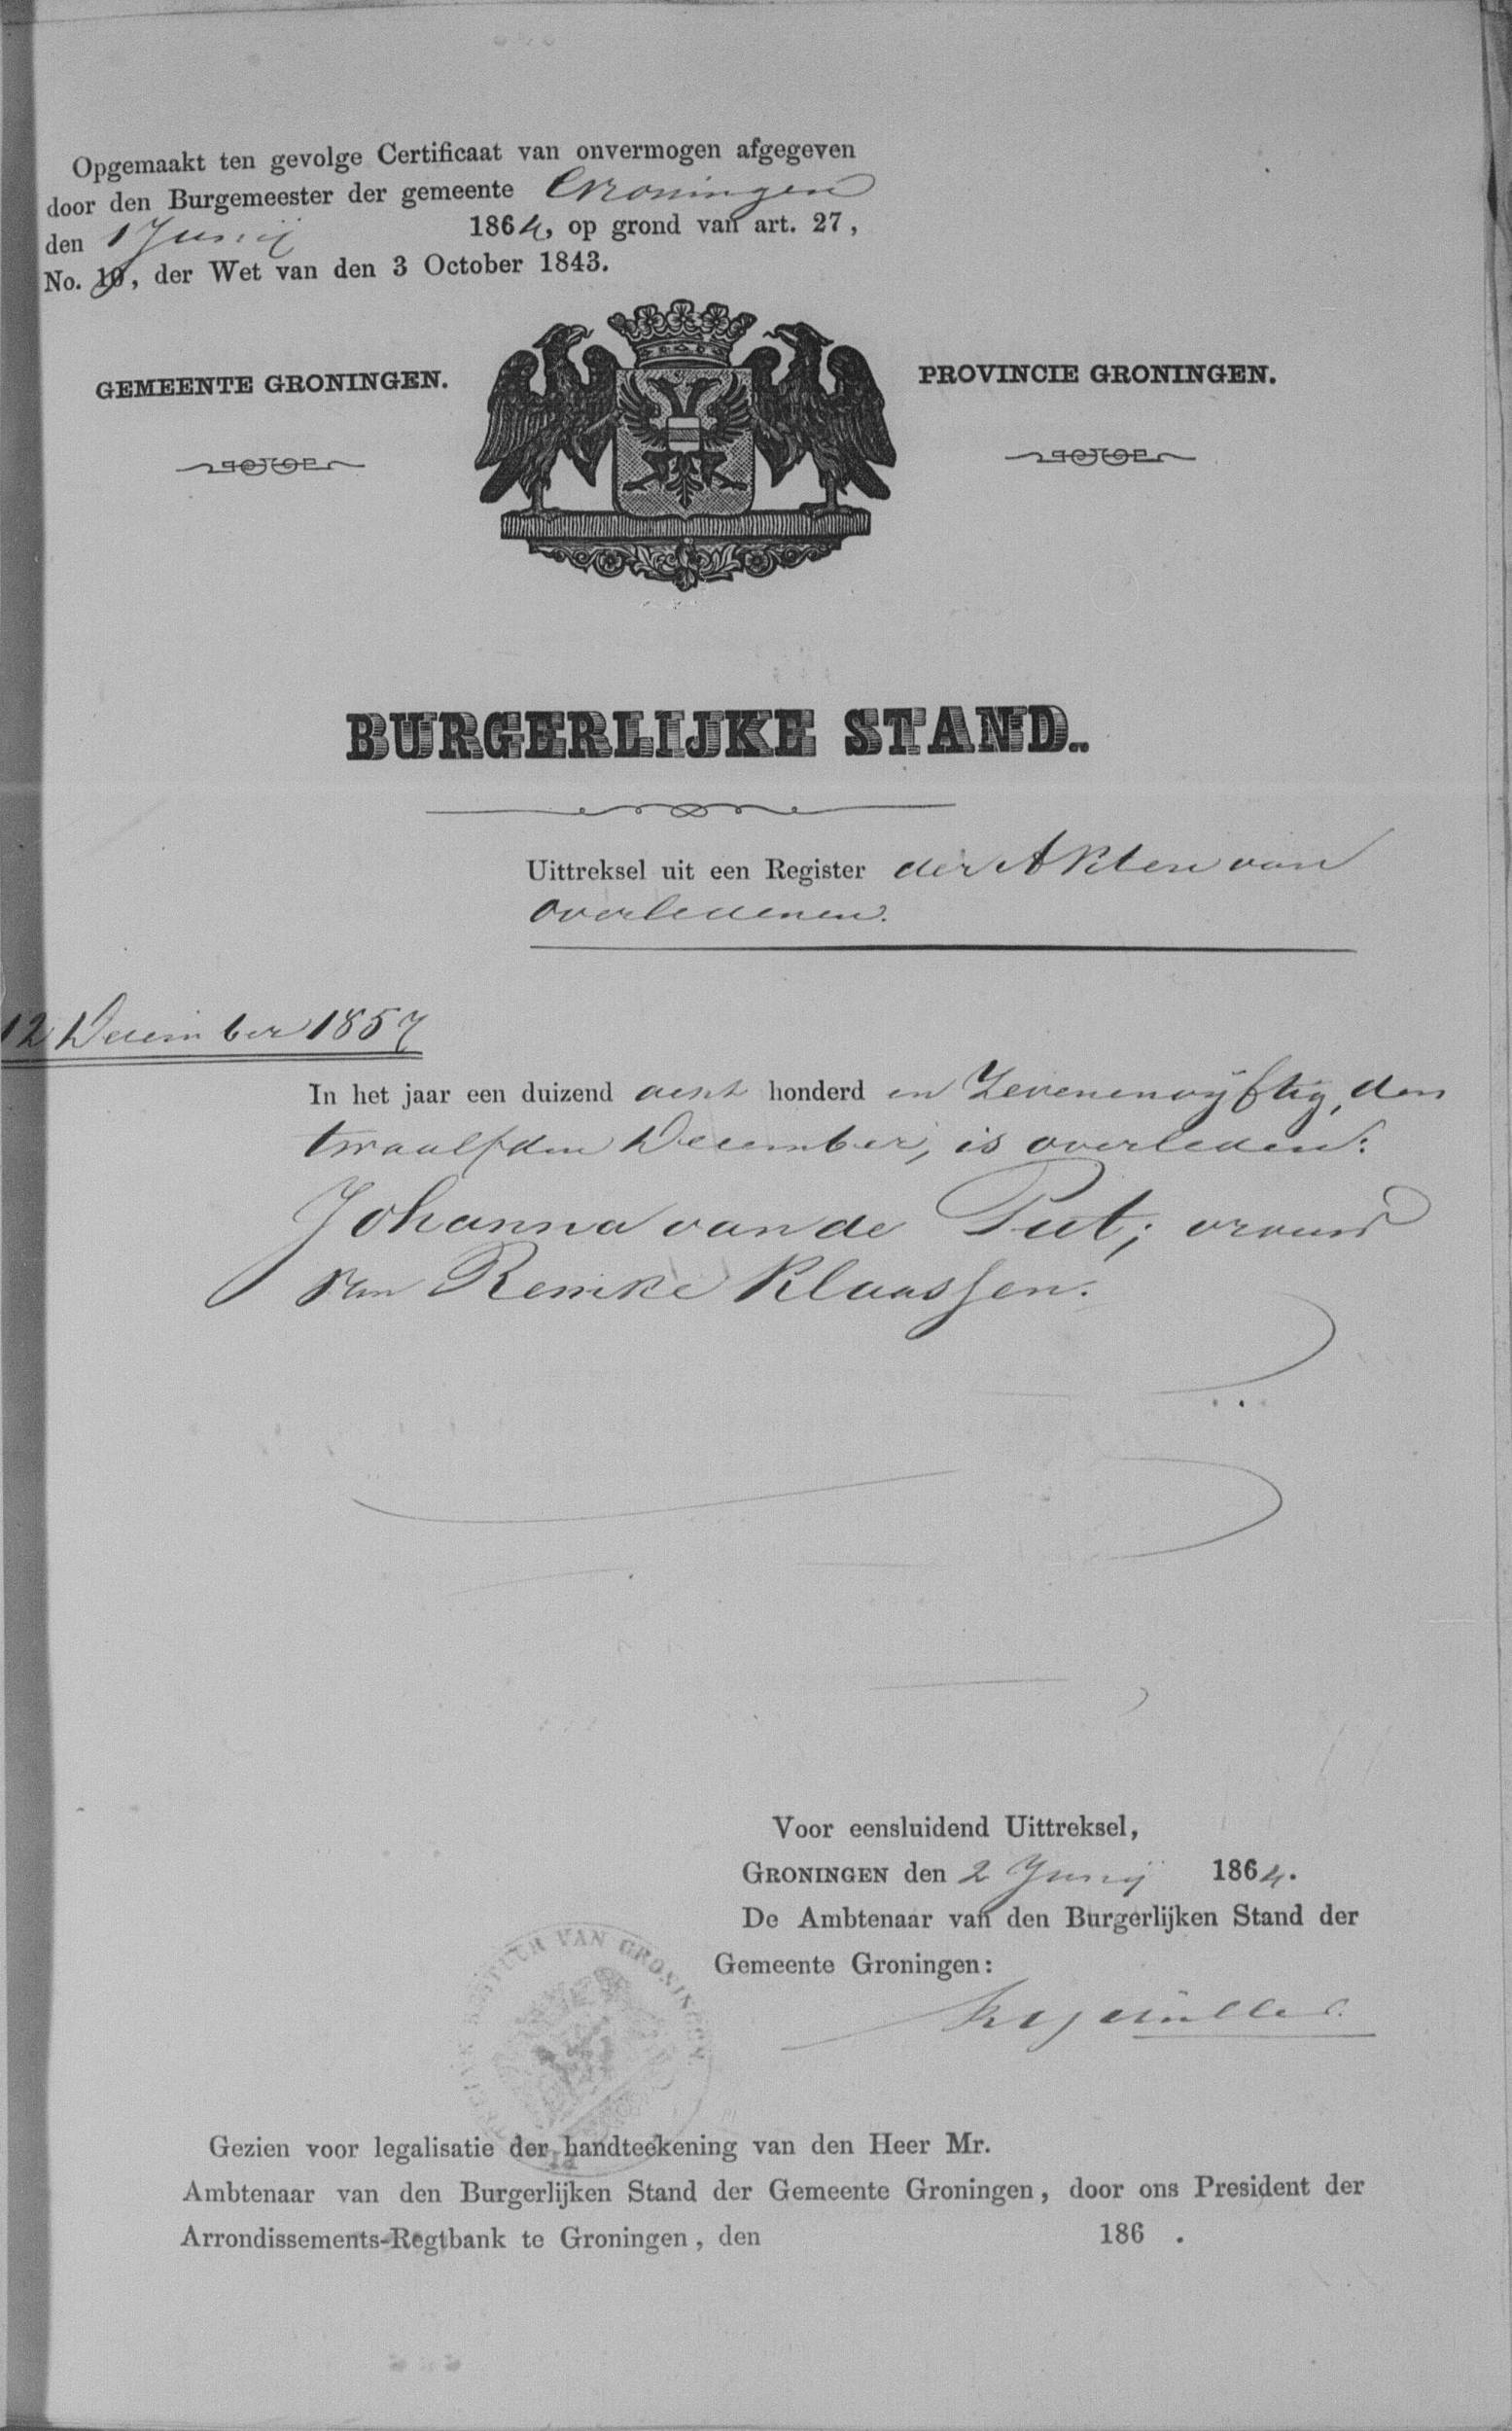 Opgemaakt ten gevolge Certificaat van onvermogen afgegeven
door den Burgemeester der gemeente Groningen
den 1 Junij 1864, op grond van art. 27,
No. 19, der Wet van den 3 October 1843.
GEMEENTE GRONINGEN.
PROVINCIE GRONINGEN.
BURGERLIJKE STAND.
Uittreksel uit een Register der Akten van
overledenen.
12 December 1857
In het jaar een duizend acht honderd en Zevenenvyftig, den
twaalfden December, is overleden:
Johanna van de Put; vrouw
van Remke Klaassen.
Voor eensluidend Uittreksel,
GRONINGEN den 2 Junij 1864.
De Ambtenaar van den Burgerlijken Stand der
Gemeente Groningen:
VAN GRONINGEN
Gezien voor legalisatie der handteekening van den Heer Mr.
Ambtenaar van den Burgerlijken Stand der Gemeente Groningen, door ons President der
Arrondissements-Regtbank te Groningen, den 186 .